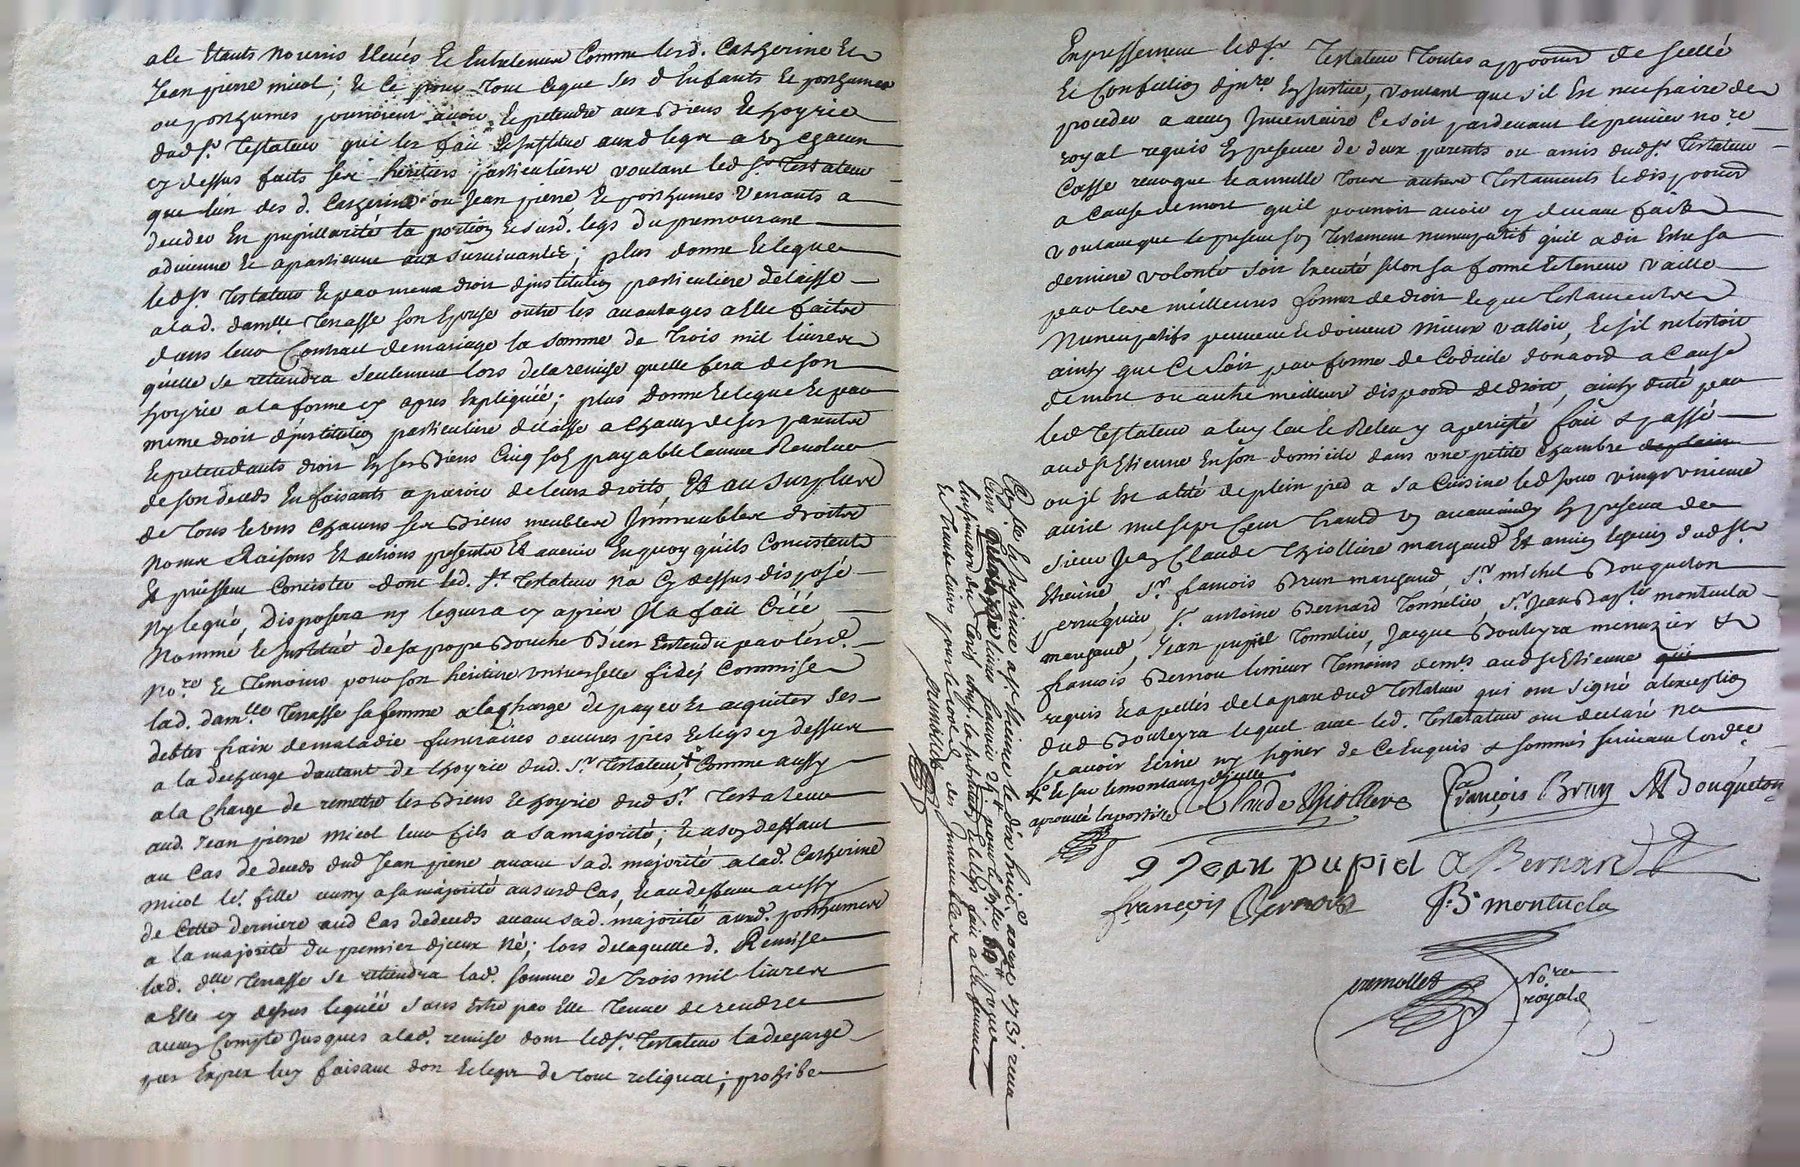 ale Etants nourris Elevés et Entretenus Comme lesd. Catherine Et
Jean pierre micol; Et Ce pour tout Ceque Ses d Enfants Et posthumes
ou posthumes pourroient avoir Et pretendre aux Biens Et hoyrie
dud sr. Testateur qui les fait Et institue aud legat a Un Chacun
cy dessus faits ses héritiers particuliers voulant led sr. Testateur
que lun des d. Catherine ou Jean pierre Et posthumes Venants a
deceder En pupillarité la portion Et sud. legs du premourant
advienne Et apartienne aux survivants; plus donne Et legue
led sr Testateur Et par meme droit d'jnstitution particuliere delaisse
alad. damlle Tenasse son Epouse outre les avantages a Elle faits
dans leur Contract de mariage la somme de Trois mil livres
qu'elle se retiendra seulement lors dela remise quelle fera de son
hoyrie a la forme cy apres Expliquée; plus donne Et legue Et par
meme droit d'jnstitution particuliere delaisse a Chacun de ses parents
Et pretendants droit En ses Biens Cinq sols payable lannée Revolue
de son deceds En faisants aparoir de leurs droits, Et au surplus
de Tous Et uns Chacuns ses Biens meubles Jmmeubles droits
noms Raisons Et actions presents Et avenir En quoy qu'ils Concistent
Et puissent Concister dont led. sr. Testateur na Cy dessus disposé
Ny legué, disposera ny leguera cy apres Jl a fait Créé
Nommé Et Jnstitué de sa propre Bouche Bien Entendu par lesd.
No.re Et Temoins pour son héritiere universelle fidej Commise
lad. damlle Tenasse sa femme a la Charge de payer Et acquiter ses
debtes fraix de maladie funeraires oeuvres pies Et legs cy dessus
a la decharge d'autant de lhoyrie dud. sr. Testateur, + Comme aussy
a la Charge de remettre les Biens Et hoyrie dud sr. Testateur
aud. Jean pierre micol leur fils a sa majorité; Et a son deffaut
au Cas de deceds dud Jean pierre avant sad. majorité a lad. Catherine
micol led. fille aussy a sa majorité ausurd Cas, Et au deffaut aussy
de Cette derniere aud Cas de deceds avant sad. majorité aud. posthumes
a la majorité du premier d'jceux Né; lors de laquelle d. Remise
lad. dlle Tenasse se retiendra lad. somme de Trois mil livres
a Elle cy dessus leguée sans Estre par Elle Tenue de rendre
aucun Compte Jusques a lad. remise dont led sr. Testateur la decharge
par Exprex luy faisant don Et legs de tout reliquat; prohibe
Expressement led sr Testateur Toutes apposions de scellé
Et Confection d'jnre En Justice, voulant que s'il Est necessaire de
proceder a aucun Jnventaire Ce soit pardevant le premier nore
royal requis En presence de deux parents ou amis dud sr. Testateur
Casse revoque Et annulle Tous autres Testaments Et disposions
a Cause de mort qu'il pourroit avoir cy devant faits
voulant que le present son Testament nuncupatif qu'il a dit Estre sa
derniere volonté soit Executé selon sa forme Et teneur vaille
par les meilleures formes de droit Et que Testaments
Nuncupatifs peuvent Et doivent mieux valloir, Et s'il ne restoit
ainsy que Ce soit par forme de Codicile donaon a Cause
de mort ou autre meilleure disposion de droit, ainsy dicté par
led Testateur a luy leu Et Releu y a percisté fait & passé
aud st Etienne En son domicile dans une petite Chambre de plain
ou jl Est alité de plein pied a sa Cuisine led jour vingt unieme
avril mil sept Cent Trante un avant midy En presence de
sieur Jean Claude Thiolliere marchand Et ancien Echevin dud st
Etienne Sr. francois Brun marchand, Sr. michel Bouqueton
perruquier, Sr antoine Bernard Tonnelier, Sr. Jean Bapte montucla
marchand, Jean pupiel Tonnelier, Jacque Bouteyra menuzier &
francois Bernou limeur Temoins demts aud st Etienne qui
requis Et apellés de la part dud Testateur qui ont signé a lexception
dud Bouteyra lequel avec led. Testateur ont declaré ne
scavoir Ecrire ny signer de Ce Enquis & sommés suivant lordce
+o Et sur le montant d'jcelle
aprouvé lapostille
Claude Thiolliere François Brun M Bouqueton
Jean pupiel A Bernard
françois Bernou J. B. montucla
premollet No.re royal
Con.lé Et Jnsinué a st Etienne le dix huit aout 1731 reçu
livres pour le Controlle
Linsinuation du tarif
Et Trante livres pour le des Jmmeubles
premollet